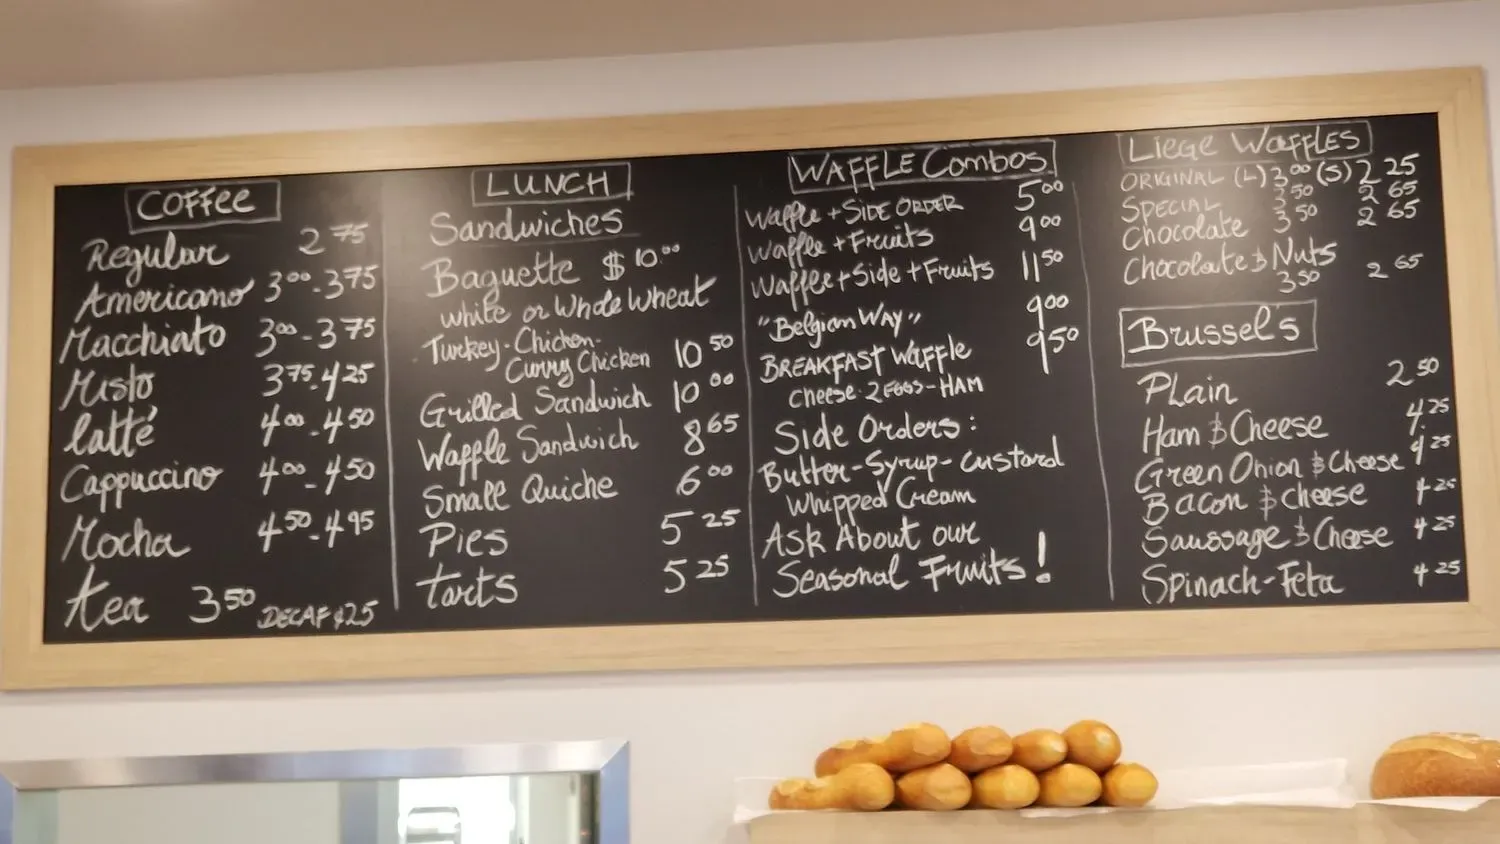 COFFEE
Regular 2 75
Americano 3 00 - 3 75
Macchiato 3 00 - 3 75
Misto 3 75 - 4 25
latté 4 00 - 4 50
Cappuccino 4 00 - 4 50
Mocha 4 50 - 4 95
tea 3 50 DECAF ¢25
LUNCH
Sandwiches
Baguette $10.00
white or Whole Wheat
Turkey - Chicken -
Curry Chicken 10 50
Grilled Sandwich 10 00
Waffle Sandwich 8 65
Small Quiche 6 00
Pies 5 25
tarts 5 25
WAFFLE Combos
Waffle + SIDE ORDER 5 00
Waffle + Fruits 9 00
Waffle + Side + Fruits 11 50
"Belgian Way" 9 00
BREAKFAST Waffle 9 50
Cheese - 2 EGGS - HAM
Side Orders:
Butter - Syrup - Custard
Whipped Cream
Ask About our
Seasonal Fruits!
Liege WaFFLES
ORIGINAL (L) 3 00 (S) 2 25
SPECIAL 3 50 2 65
Chocolate 3 50 2 65
Chocolate & Nuts
3 50 2 65
Brussel's
PLain 2 50
Ham & Cheese 4.25
Green Onion & Cheese 4 25
Bacon & Cheese 4 25
Saussage & Cheese 4 25
Spinach-Feta 4 25